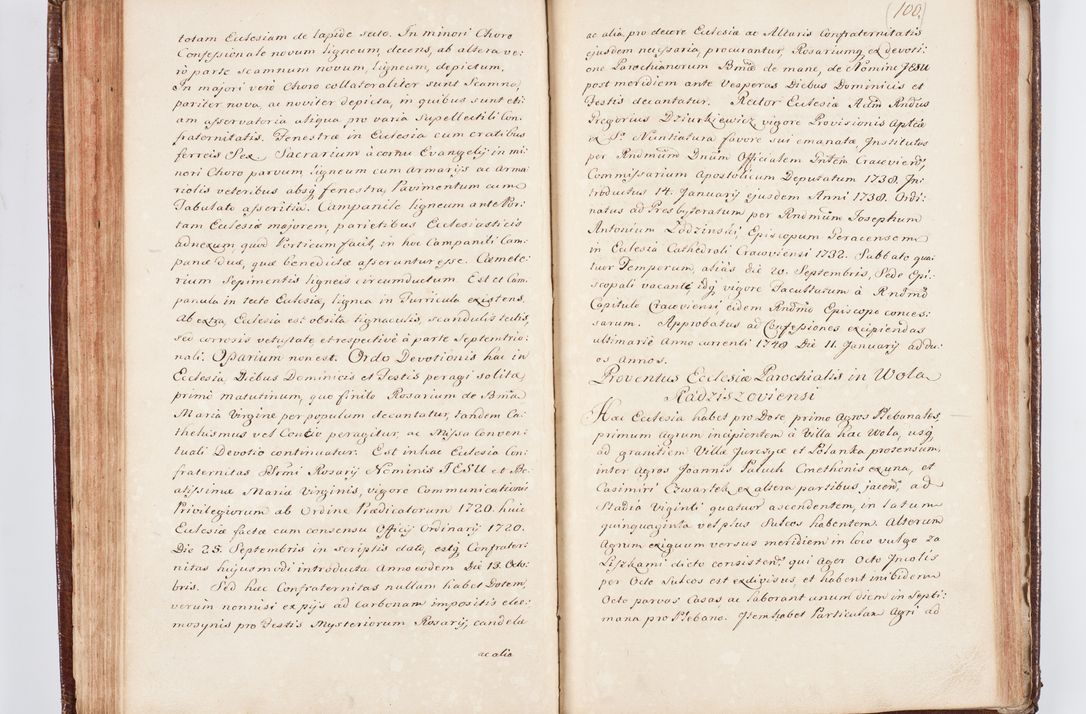 totam Ecclesiam de lapide secto. In minori Choro
Confessionale novum ligneum, decens, ab altera ve:
rò parte scamnum novum, ligneum, depictum.
In majori verò Choro collateraliter sunt Scamna,
pariter nova, ac noviter depicta, in quibus sunt eti:
am asservatoria aliqua pro varia Supellectili Con:
fraternitatis. Fenestræ in Ecclesia cum cratibus
ferreis Sex. Sacrarium à cornu Evangelij in mi:
nori Choro parvum, ligneum cum Armarijs ac Arma
riolis veteribus absq́ fenestra, Pavimentum cum
Tabulato asseritia. Campanile ligneum ante Por:
tam Ecclesiæ majorem, parietibus Ecclesiasticis
adnexum quod Porticum facit, in hoc Campanili Cam:
panæ duæ, quæ benedictæ asseruntur esse. Cæmete:
rium Sepimentis ligneis circumductum. Est et Cam:
panula in tecto Ecclesiæ, lignea in Turricula existens.
Ab extra, Ecclesia est obsita tignaculis, scandulis tecta,
sed corrosis vetustate et respectivè à parte Septemtrio:
nali. Ossarium non est. Ordo Devotionis hac in
Ecclesia Diebus Dominicis et Festis peragi solita,
primo matutinum, quo finito Rosarium de Bmã
Maria Virgine per populum decantatur, tandem Ca:
thechismus vel Contio peragitur, ac Missa Conven:
tuali Devotio continuatur. Est in hac Ecclesia Con:
fraternitas SSmi Rosarij Nominis JESU et Be:
atissimæ Mariæ Virginis, vigore Communicationis
Privilegiorum ab Ordine Prædicatorum 1720. huic
Ecclesiæ factæ cum consensu Officij Ordinarij 1720.
Die 25. Septembris in scriptis dato, estq́ Confrater:
nitas hujusmodi introducta Anno eodem Die 13. Octo:
bris. Sed hæc Confraternitas nullam habet Dotem,
verùm nonnisi ex pijs ad Carbonam impositis elee:
mosynis pro Festis Mysteriorum Rosarij, candelæ
ac alia
(100)
ac alia pro decore Ecclesiæ ac Altaris Confraternitatis
ejusdem necessaria, procurantur, Rosariumq́ ex devoti:
one Parochianorum Bmæ de mane, de Nomine JESU
post meridiem ante Vesperas Diebus Dominicis et
Festis decantatur. Rector Ecclesiæ Adm Rndus
Gregorius Dziurkiewicz vigore Provisionis Aplicæ
ex S. Nuntiatura favore sui emanata, Institutus
per Rndmum Dnum Officialem Gnlem Cracovien̄,
Commissarium Apostolicum Deputatum 1738. In:
troductus 14. Januarij ejusdem Anni 1738. Ordi:
natus ad Presbyteratum per Rndmum Josephum
Antonium Łodzinski Episcopum Geracensem
in Ecclesia Cathedrali Cracoviensi 1732. Sabbato qua:
tuor Temporum, alias die 20. Septembris, Sede Epi:
scopali vacante idq́, vigore Facultatum à Rndmo
Capitulo Cracoviensi, eidem Rndmo Episcopo conces:
sarum. Approbatus ad Confessiones excipiendas
ultimariè Anno currenti 1748 Die 11. Januarij ad du:
os annos.
Proventus Ecclesiæ Parochialis in Wola
Radziszoviensi
Hæc Ecclesia habet pro Dote primo Agros Plebanales,
primum Agrum incipientem à Villa hac Wola, usq́
ad granitiem Villæ Jurczyce et Polanka protensum,
inter Agros Joannis Paluch Cmethonis ex una, et
Casimiri Czwartek ex altera partibus jacen̄, ad
Stadia Viginti quatuor ascendentem, in latum
quinquaginta vel plus Sulcos habentem. Alterum
Agrum exiguum versus meridiem in loco vulgo za
Liszkami dicto consisten̄, qui Ager Octo Incolis
per Octo Sulcos est exdivisus, et habent inibidem
Octo parvas Casas ac laborant unum diem in Septi:
mana pro Plebano. Item habet Particulam Agri ad